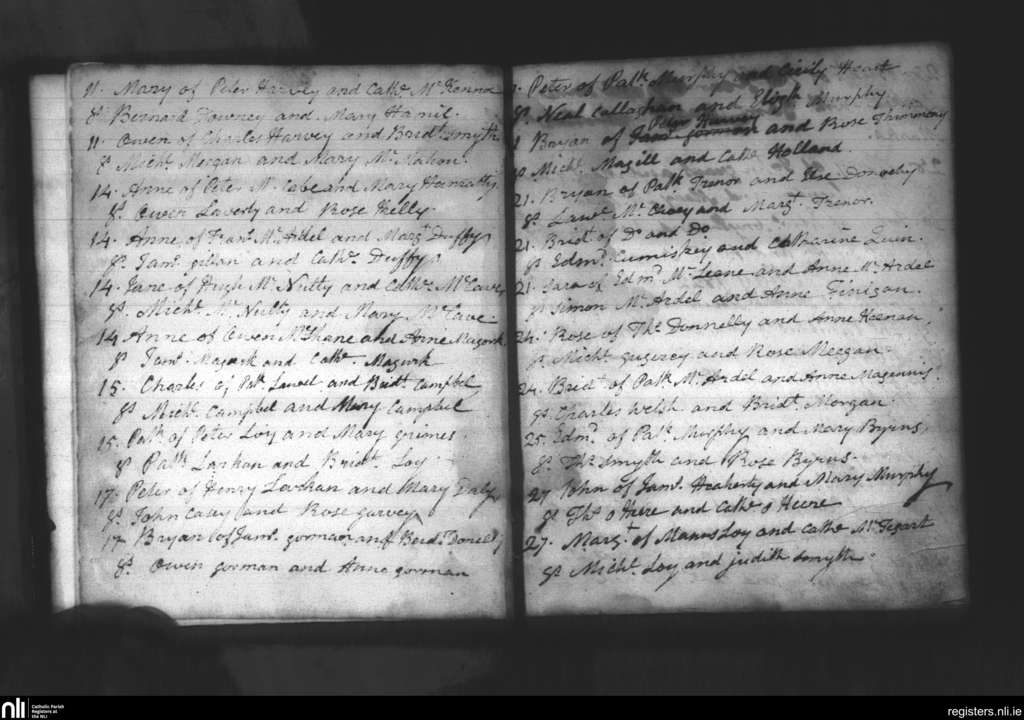 11. Mary of Peter Harvey and Cathe. Mc Kenna
Sp. Bernard Downey and Mary Hamil.
11. Owen of Charles Harvey and Bridt. Smyth.
Sp. Michl. Morgan and Mary Mc Mahon.
14. Anne of Peter Mc Cabe and Mary
Sp. Owen Laverty and Rose Kelly.
14. Anne of Frans. Mc Ardel and Margt. Duffy
Sp. Jams. gillan and Cathe. Duffy.
14. Jane of Hugh Mc Nulty and Cathe. Mc Cave,
Sp. Michl. Mc Nulty and Mary Mc Cave.
14 Anne of Owen Mc Shane and Anne Magork,
Sp Jams. Magork and Cathe. Magork
15. Charles of Patk. Lavel and Bridt. Campbel
Sp. Michl. Campbel and Mary Campbel
15. Patk. of Peter Loy and Mary grimes.
Sp Patk. Larkan and Bridt. Loy.
17. Peter of Henry Larkan and Mary Daly
Sp. John Casey and Rose garvey
17 Bryan of Jams. gorman and Bridt. Donelly
Sp. Owen gorman and Anne gorman
Peter of Patk. Murphy and Cicily Heart
Sp. Neal Callaghan and Elizh. Murphy
Peter Harvey
Bryan of gorman and Rose
Sp Michl. Magill and Cathe. Holland.
21. Bryan of Patk. Trenor and Else
Sp. Lawe. Mc and Margt. Trenor.
21. Bridt. of Do and Do
Sp Edmd. Cumiskey and Catharine Quin.
21. Sara of Edmd. Mc Leane and Anne Mc Ardel
Sp Simon Mc Ardel and Anne Finigan.
24. Rose of Ths. Donnelly and Anne Keenan,
Sp. Michl. and Rose Meegan.
24. Bridt. of Patk. Mc Ardel and Anne Magennis.
Sp. Charles Welsh and Bridt. Morgan.
25. Edmd. of Patk. Murphy and Mary Byrns,
Sp. Ths. Smyth and Rose Byrns.
27 John of Jams. Heaherty and Mary Murphy
Sp Ths. o Heere and Cathe. o Heere
27. Margt. of Manus Loy and Cathe. Mc Tegart
Sp Michl. Loy and judith Smyth.
nli
Catholic Parish
Registers at
the NLI
registers.nli.ie